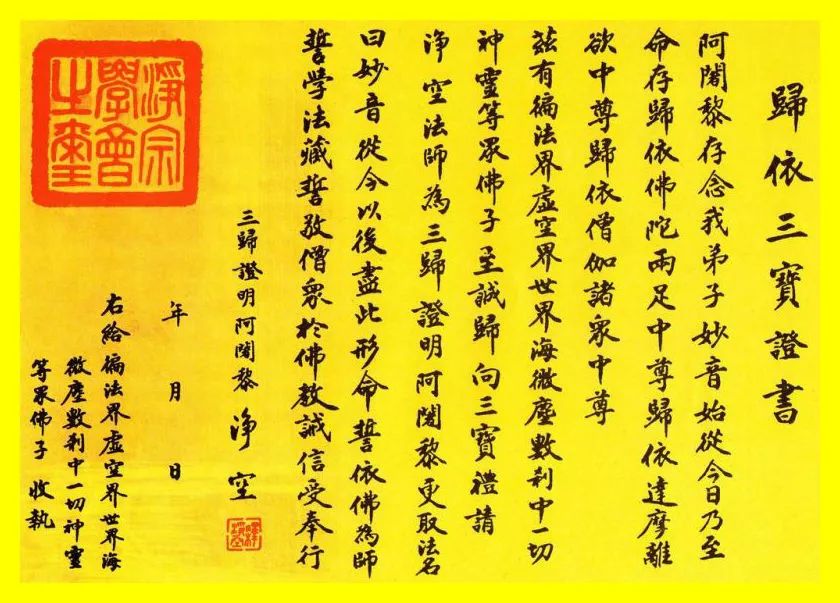 歸依三寶證書
阿闍黎存念我弟子妙音始從今日乃至
命存歸依佛陀兩足中尊歸依達摩離
欲中尊歸依僧伽諸眾中尊
茲有徧法界虛空界世界海微塵數剎中一切
神靈等眾佛子至誠歸向三寶禮請
淨空法師為三歸證明阿闍黎更取法名
曰妙音從今以後盡此形命誓依佛為師
誓學法藏誓敬僧眾於佛教誡信受奉行
三歸證明阿闍黎 淨空
年 月 日
右給徧法界虛空界世界海
微塵數剎中一切神靈
等眾佛子 收執
淨宗
學會
之璽